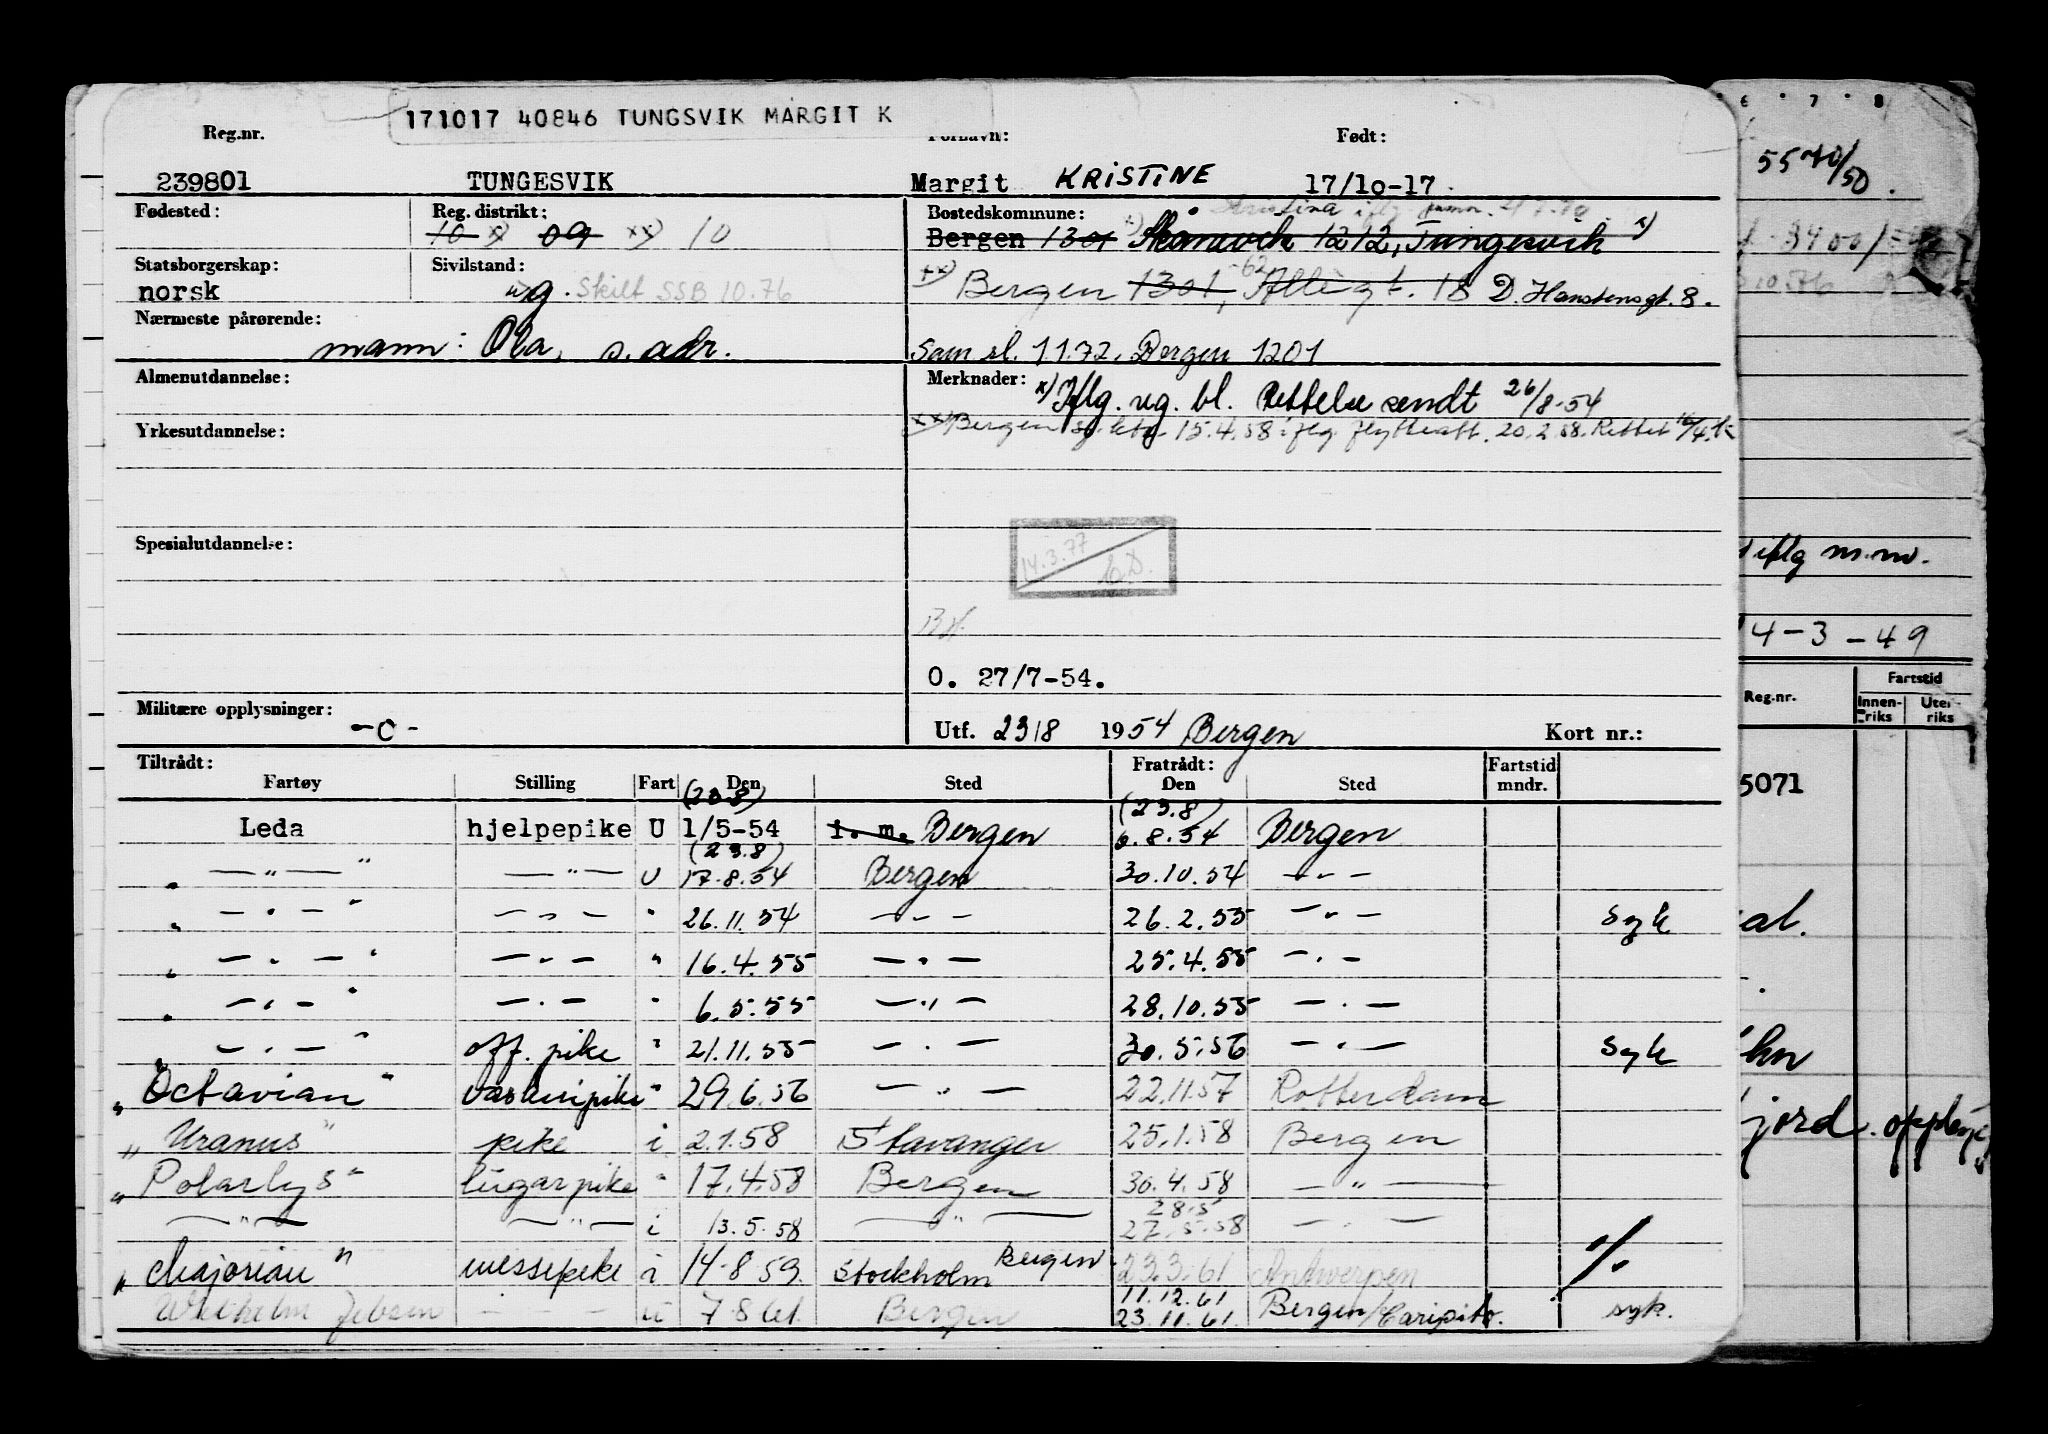 171017 40846 TUNGSVIK MARGIT K
Reg.nr. Født:
239801 TUNGESVIK Margit KRISTINE 17/10-17
Fødested: Reg. distrikt: Bostedskommune:
10 x) 09 xx) 10 Bergen 1301 Skånevik 1212, Tungesvik x)
Statsborgerskap: Sivilstand:
norsk g. Skilt SSB 10.76 xx) Bergen 1301, 18 D. Hanstensgt. 8.
Nærmeste pårørende:
mann: Ola, s. adr. Sam sl. 11.72, Bergen 1201
Almenutdannelse: Merknader: x) Iflg. reg. bl. Rettelse sendt 26/8-54
Yrkesutdannelse: xx) Bergen 15.4.58 iflg. 20.2.58. Rettet
Spesialutdannelse:
14.3.77
O. 27/7-54.
Militære opplysninger: -o- Utf. 23/8 1954 Bergen Kort nr.:
Tiltrådt: Fratrådt: Fartstid
Fartøy Stilling Fart Den Sted Den Sted mndr.
(23.8) (23.8)
Leda hjelpepike U 1/5-54 i. m. Bergen 6.8.54 Bergen
(23.8)
" — " — " — " — U 17.8.54 Bergen 30.10.54 - " -
" — " — " — " — " 26.11.54 - " - 26.2.55 - " - Syk
" — " — " — " — " 16.4.55 - " - 25.4.55 - " -
" — " — " — " — " 6.5.55 - " - 28.10.55 - " -
" — " — " off. pike " 21.11.55 - " - 30.5.56 - " - Syk
"Octavian" vaskeripike " 29.6.56 - " - 22.11.57 Rotterdam
"Uranus" pike i 2.1.58 Stavanger 25.1.58 Bergen
"Polarlys" lugarpike " 17.4.58 Bergen 30.4.58 - " -
28.5
— " — — " — i 13.5.58 — " — 27.5.58 - " -
"Majorian" messepike 14.8.59 Stockholm Bergen 23.3.61 Antwerpen
11.12.61
Wilhelm Jebsen - - - u 7.8.61 Bergen 23.11.61. Bergen/Caripito. syk.
6 7 8
5570/50.
3400/
10.76
iflg m.m.
4-3-49
Reg.nr. Fartstid
Innen-riks Uten-riks
5071
al.